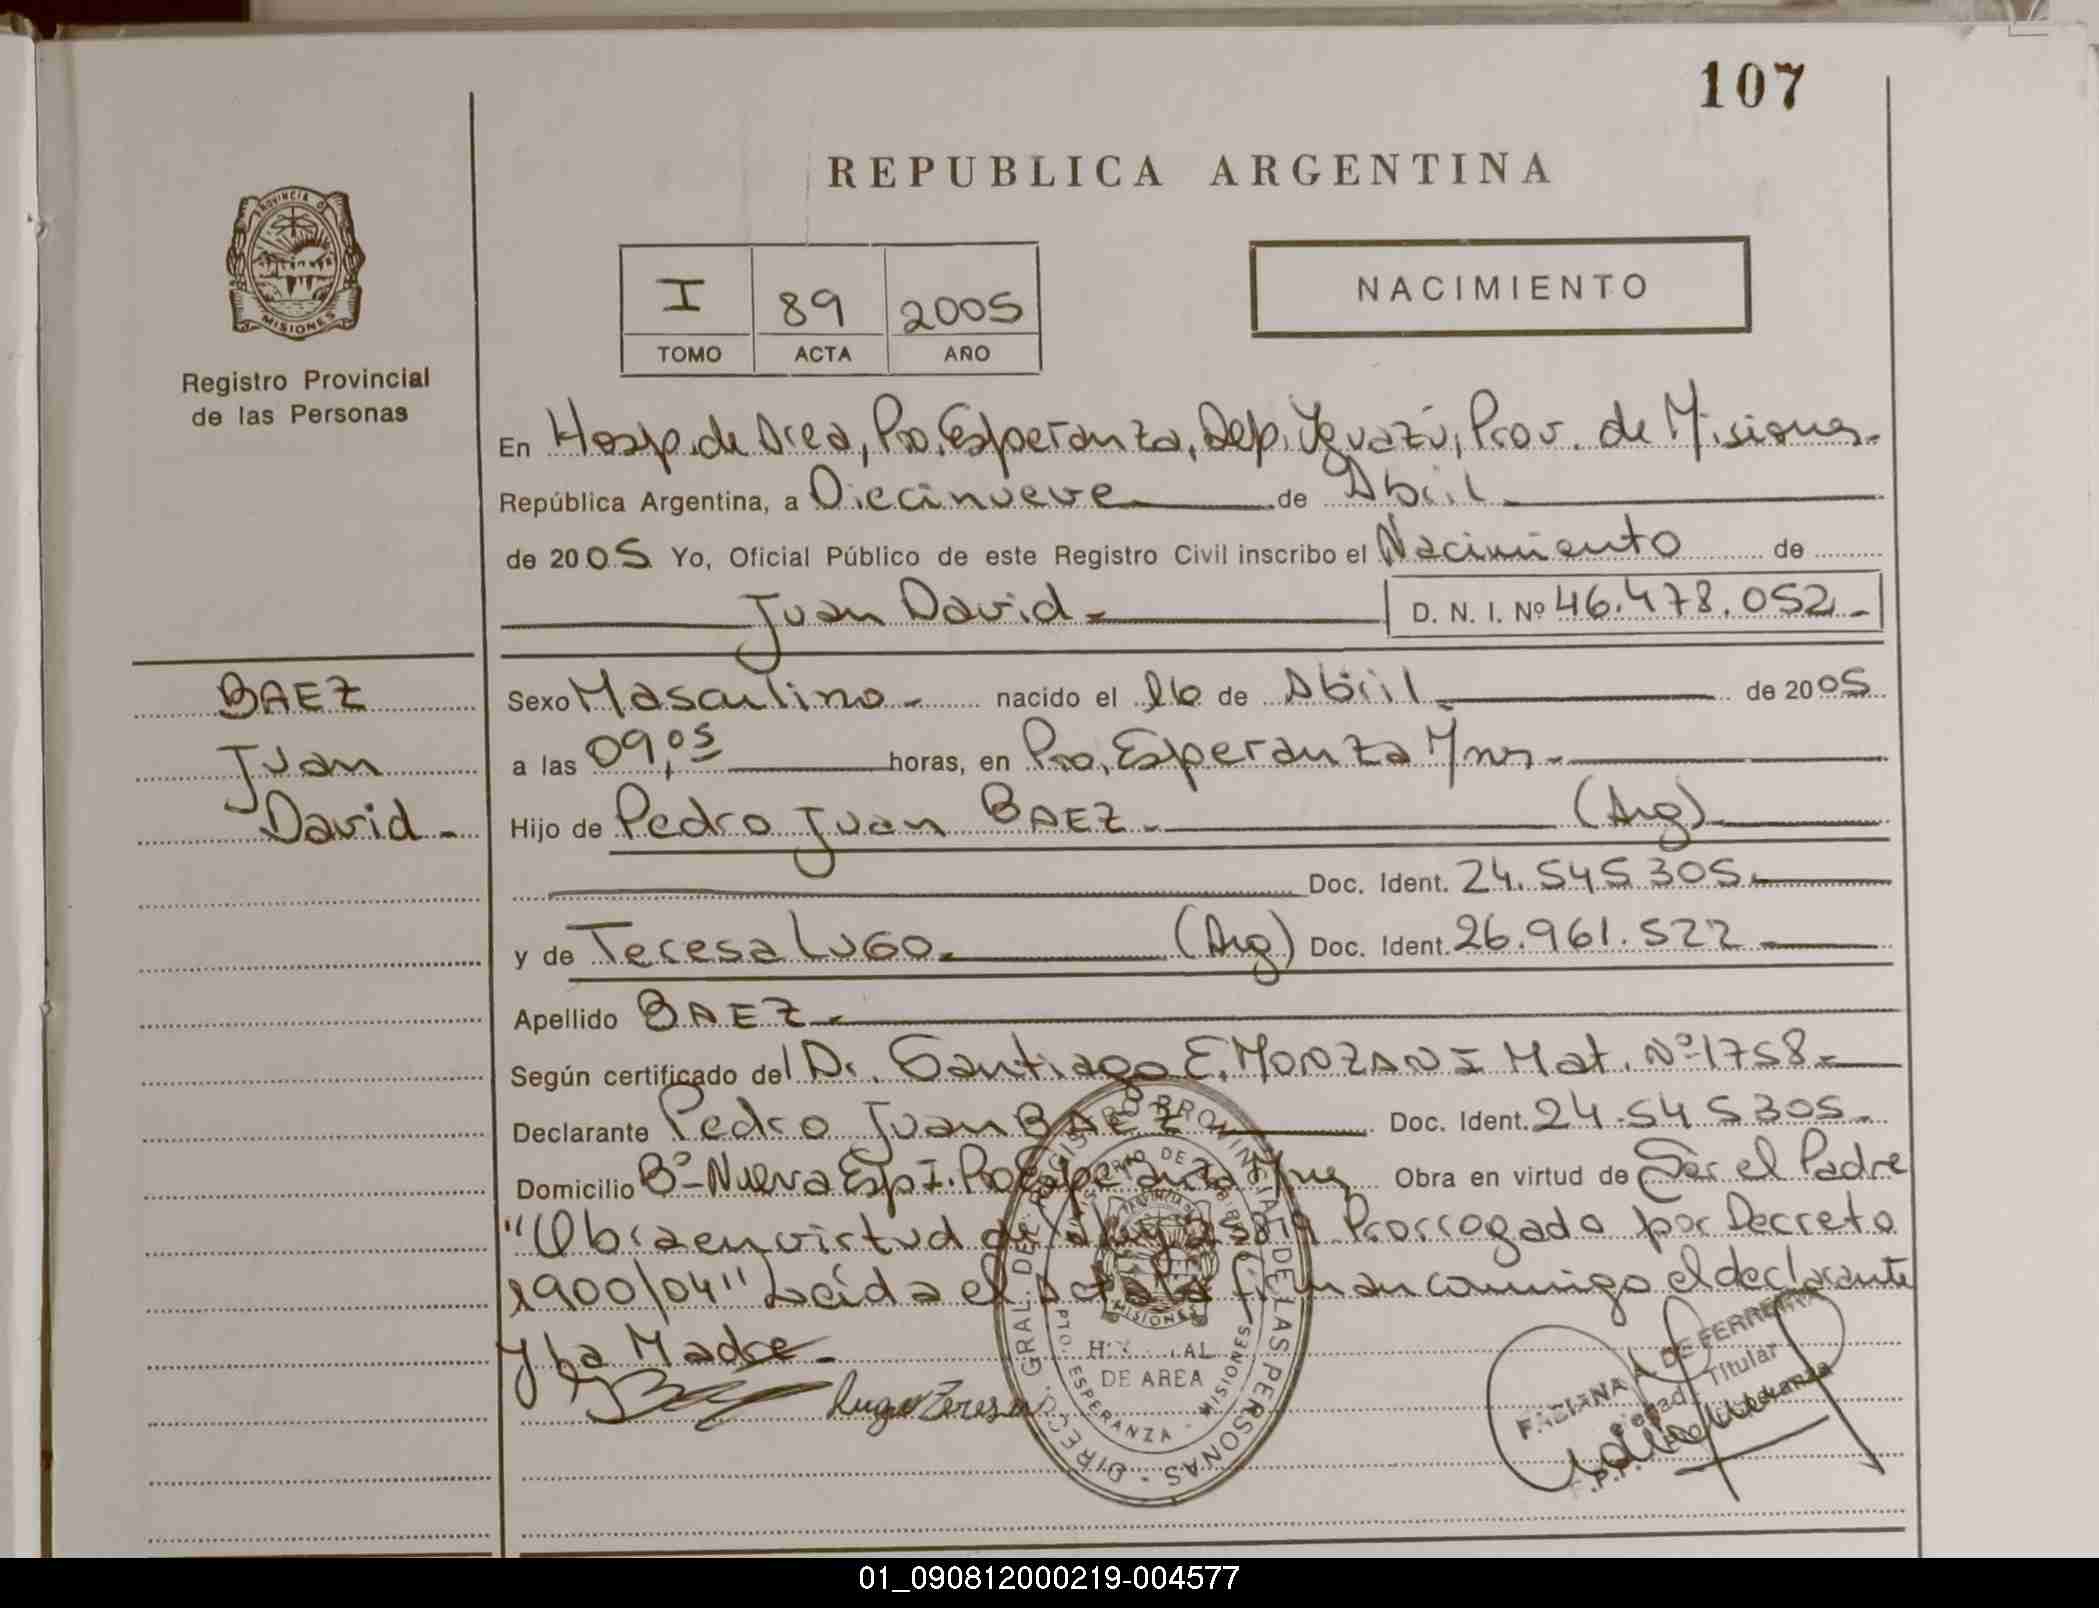 107
REPUBLICA ARGENTINA
PROVINCIA D
MISIONES
Registro Provincial
de las Personas
I 89 2005
TOMO ACTA AÑO
NACIMIENTO
En Hosp. de Area, Pto. Esperanza, Dep. Iguazú, Prov. de Misiones.
República Argentina, a Diecinueve de Abril
de 2005 Yo, Oficial Público de este Registro Civil inscribo el Nacimiento de
Juan David.- D. N. I. Nº 46.478.052.-
BAEZ
Juan
David.-
Sexo Masculino.- nacido el 16 de Abril de 2005
a las 09,05 horas, en Pto. Esperanza Mnes.-
Hijo de Pedro Juan BAEZ.- (Arg)
Doc. Ident. 24.545305.-
y de Teresa LUGO.- (Arg) Doc. Ident. 26.961.522
Apellido BAEZ.-
Según certificado del Dr. Santiago E. MONZANI Mat. Nº 1758.-
Declarante Pedro Juan BAEZ Doc. Ident. 24.545305.-
Domicilio Bº Nueva Esp I. Pto Esperanza Mnes Obra en virtud de Ser el Padre
"Obra en virtud de la ley 25819 Prorrogado por Decreto
1900/04" Leída el Acta la firman conmigo el declarante
y La Madre.-
Lugo Teresa
DIRECC. GRAL. DEL REGISTRO PROVINCIAL DE LAS PERSONAS
MISIONES
DE AREA
PTO. ESPERANZA - MISIONES
FABIANA A. DE FERREIRA
Titular
01_090812000219-004577